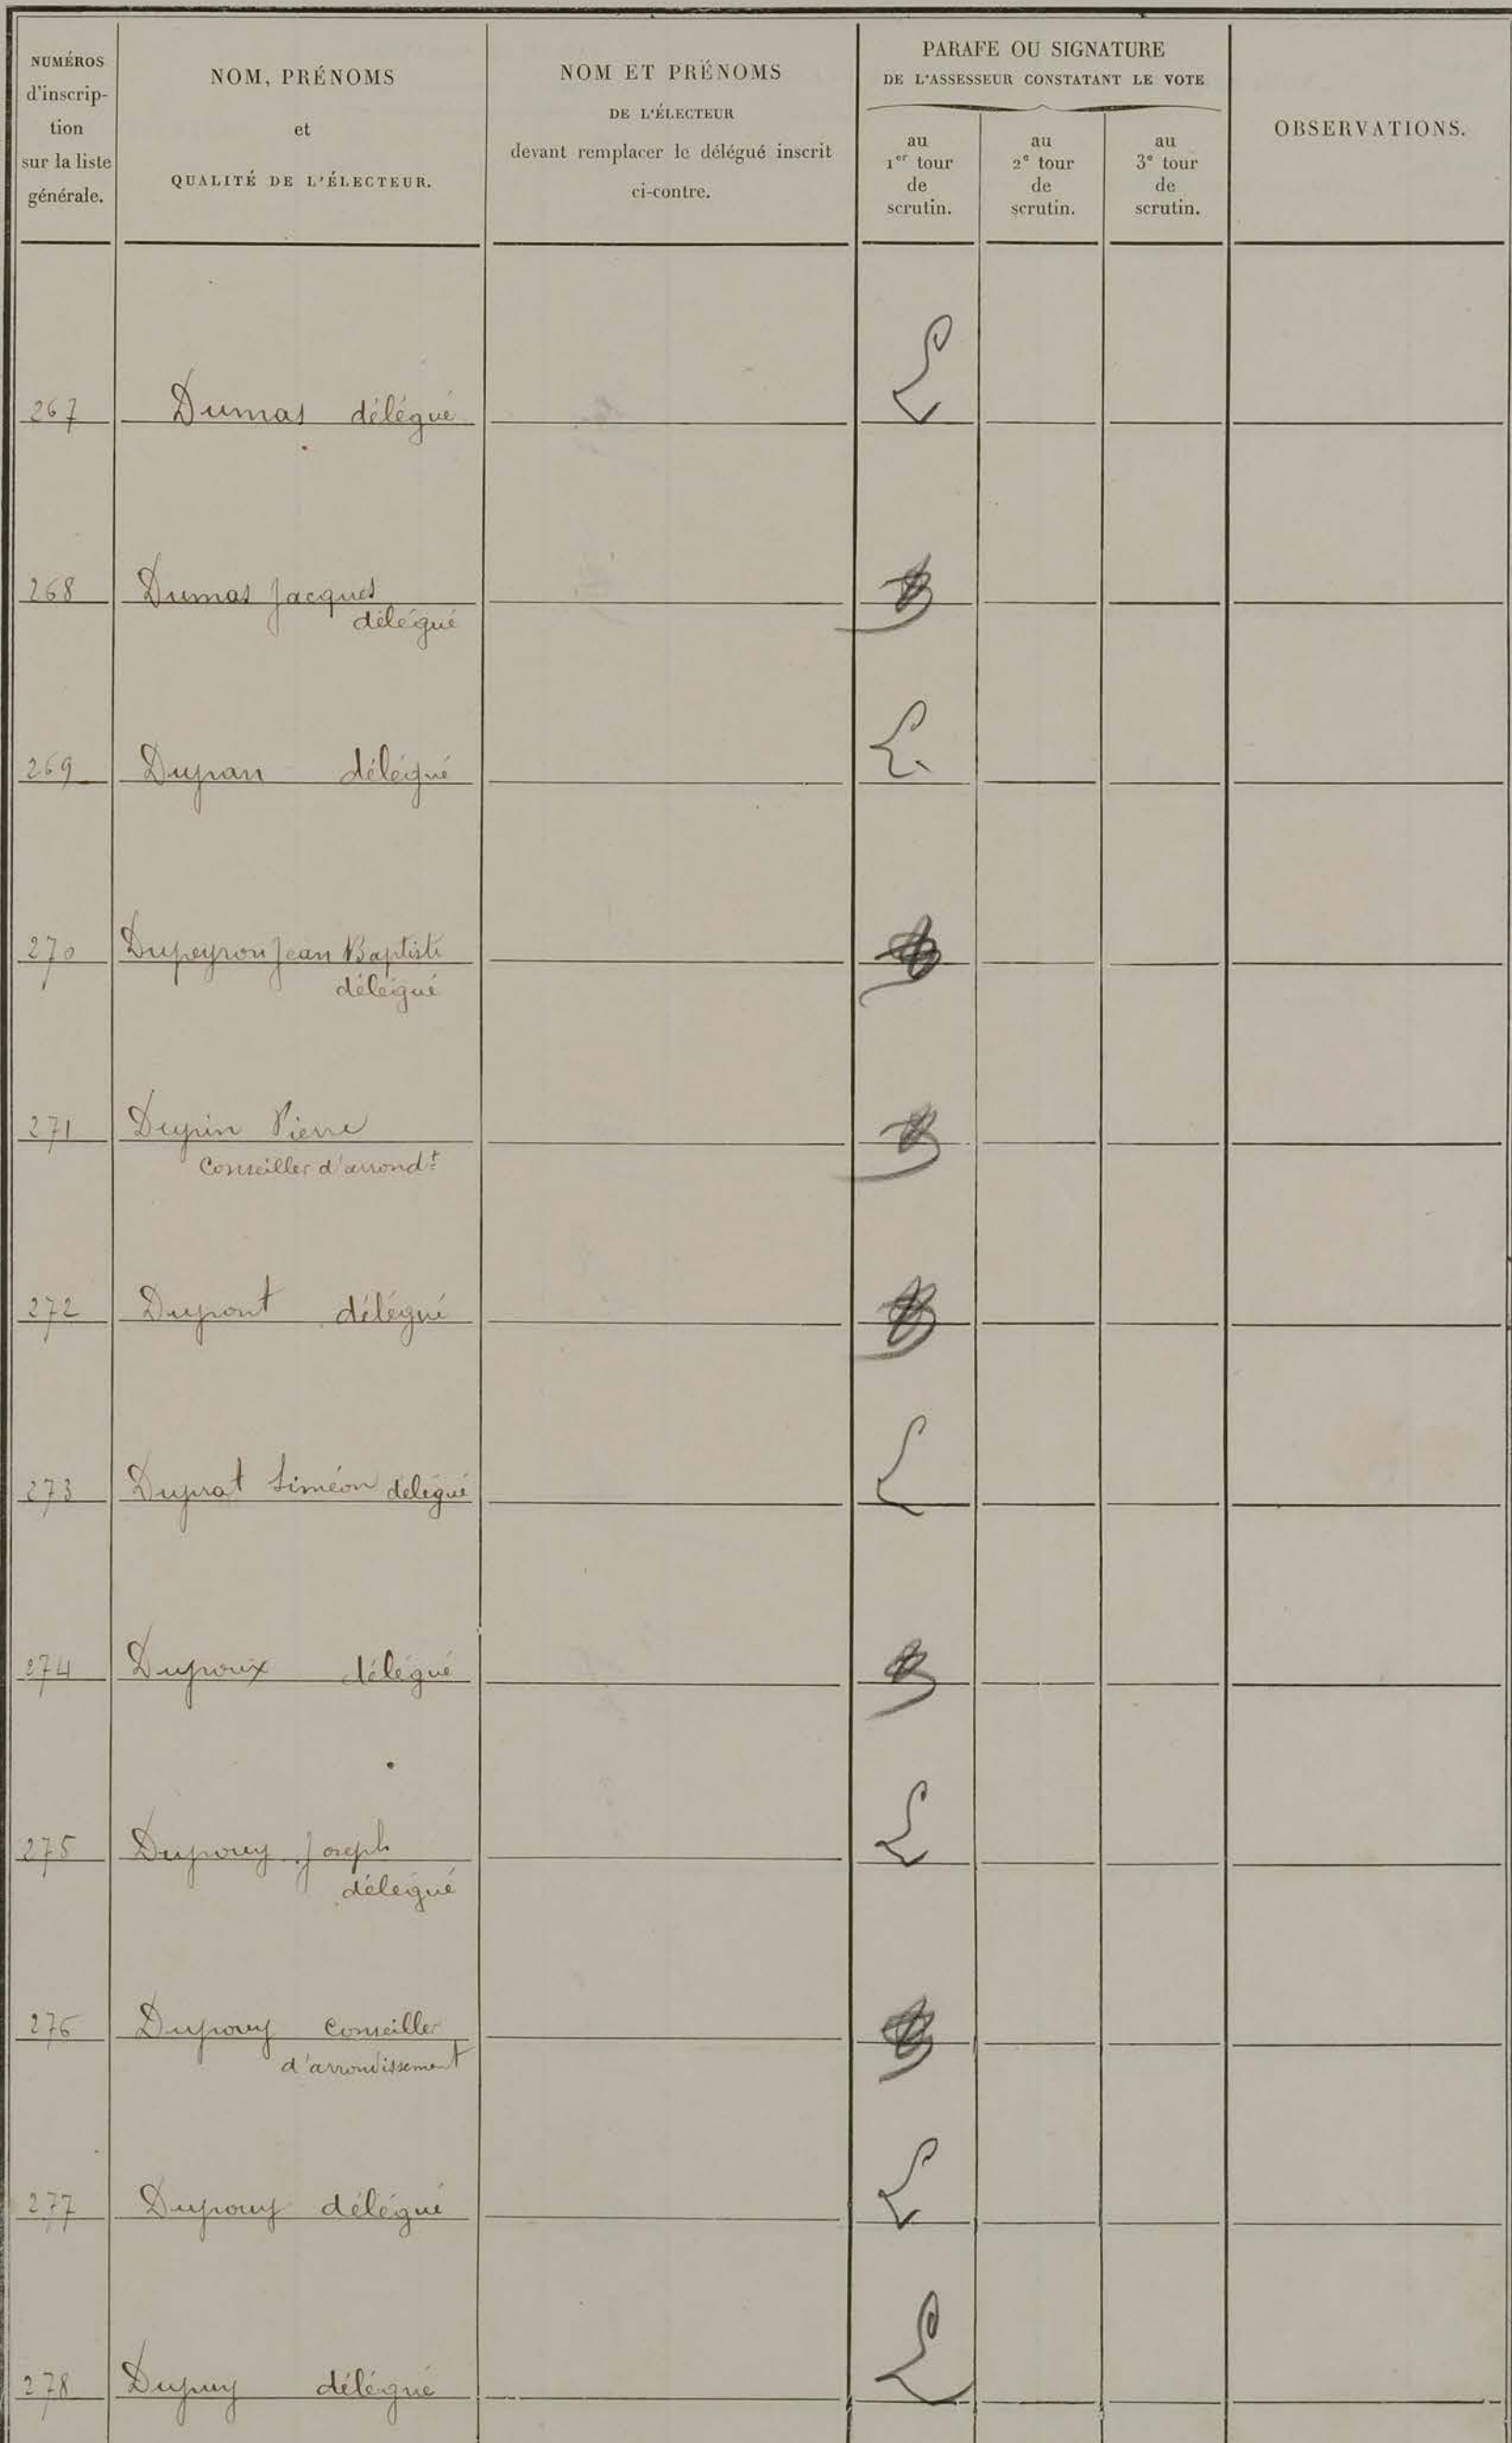 NUMÉROS
d'inscrip-
tion
sur la liste
générale.
NOM, PRÉNOMS
et
QUALITÉ DE L'ÉLECTEUR.
NOM ET PRÉNOMS
DE L'ÉLECTEUR
devant remplacer le délégué inscrit
ci-contre.
PARAFE OU SIGNATURE
DE L'ASSESSEUR CONSTATANT LE VOTE
au
1er tour
de
scrutin.
au
2e tour
de
scrutin.
au
3e tour
de
scrutin.
OBSERVATIONS.
267 Dumas délégué
268 Dumas Jacques
délégué
269 Dupan délégué
270 Dupeyron Jean Baptiste
délégué
271 Dupin Pierre
Conseiller d'arrondt
272 Dupont délégué
273 Duprat Siméon délégué
274 Duproux délégué
275 Dupouy Joseph
délégué
276 Dupouy Conseiller
d'arrondissement
277 Dupouy délégué
278 Dupuy délégué